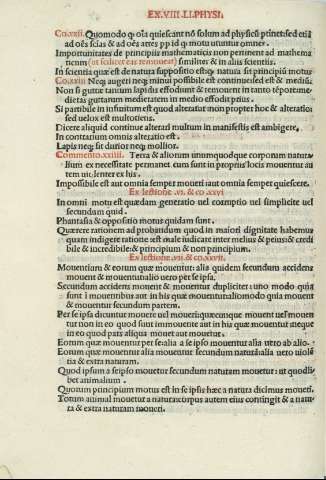 EX.VIII.LI.PHYSI.
Cto.xxii. Quomodo ꝙ oīa quiescant nō solum ad physicū ptinet: sed etiā
ad oēs sciās & ad oēs artes pp id ꝙ motu utuntur omnes.
Importunitates de principiis mathematicis non pertinent ad mathema
ticum (ut scilicet eas remoueat) similiter & in aliis scientiis.
In scientia quæ est de natura suppositio est ꝙ natura sit principiū motus
Co.xxiii Neq; augeri neq; minui possibile est continue: sed est & mediū.
Non si guttæ tantum lapidis effodiunt & remouent in tanto tēpore: me-
dietas guttarum medietatem in medio effodit prius.
Si partibile in infinitum est quod alteratur non propter hoc & alteratio
sed uelox est multotiens.
Dicere aliquid continue alterari multum in manifestis est ambigere.
In contrarium omnis alteratio est.
Lapis neq; fit durior neq; mollior.
Commento.xxiiii. Terra & aliorum unumquodque corporum natura-
lium ex necessitate permanet cum sunt in propriis locis mouentur au
tem uiolenter ex his.
Impossibile est aut omnia semper moueri aut omnia semper quiescere.
Ex lectione .vi. & co.xxvi
In omni motu est quædam generatio uel corruptio uel simplicite uel
secundum quid.
Phantasia & oppositio motus quidam sunt.
Quærere rationem ad probandum quod in maiori dignitate habemus
quam indigere ratione est male iudicare inter melius & peius & credi
bile & incredibile: & principium & non principium.
Ex lectione .vii. & co.xxvii.
Mouentium & eorum quæ mouentur: alia quidem secundum accidens
mouent & mouentur: alio uero per se ipsa.
Secundum accidens mouent & mouentur dupliciter: uno modo quia
sunt ī mouentibus aut in his quæ mouentur: alio modo quia mouent
& mouentur secundum partem.
Per se ipsa dicuntur mouere uel moueri: quæcumque mouent uel mouen
tur non in eo quod sunt immouente aut in his quæ mouentur neque
in eo quod pars aliqua mouet aut mouetur.
Eorum quæ mouentur per se: alia a se ipso mouentur alia uero ab alio.
Eorum quæ mouentur alia mouentur secundum natura: alia uero uiolē
tia & extra naturam.
Quod ipsum a seipso mouetur secundum naturam mouetur: ut quodli-
bet animalium.
Quorum principium motus est in se ipsis hæc a natura dicimus moueri.
Totum animal mouetur a natura: corpus autem eius contingit & a natu
ra & extra naturam moueri.